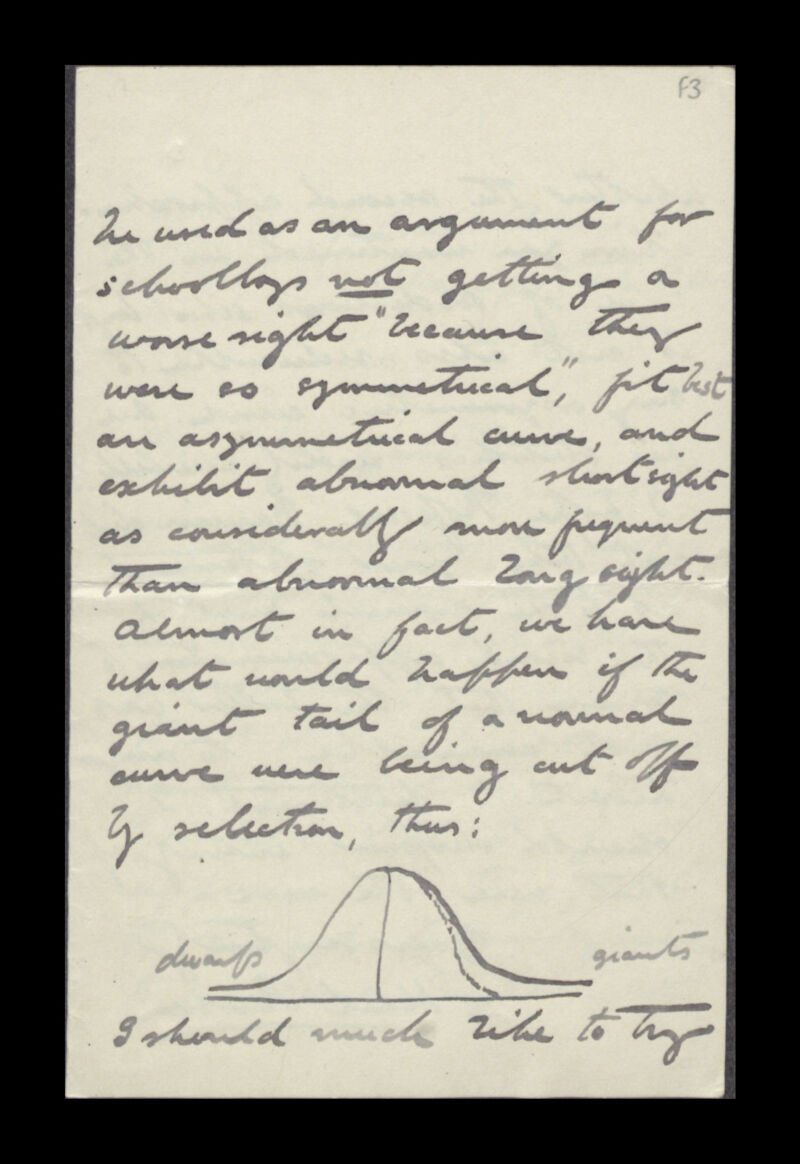 F3
he used as an argument for
schoolboys not getting a
worse sight "because they
were so symmetrical", fit best
an asymmetrical curve, and
exhibit abnormal short sight
as considerably more frequent
than abnormal long sight.
Almost in fact, we have
what would happen if the
giant tail of a normal
curve were being cut off
by selection, thus:
dwarfs giants
I should much like to try